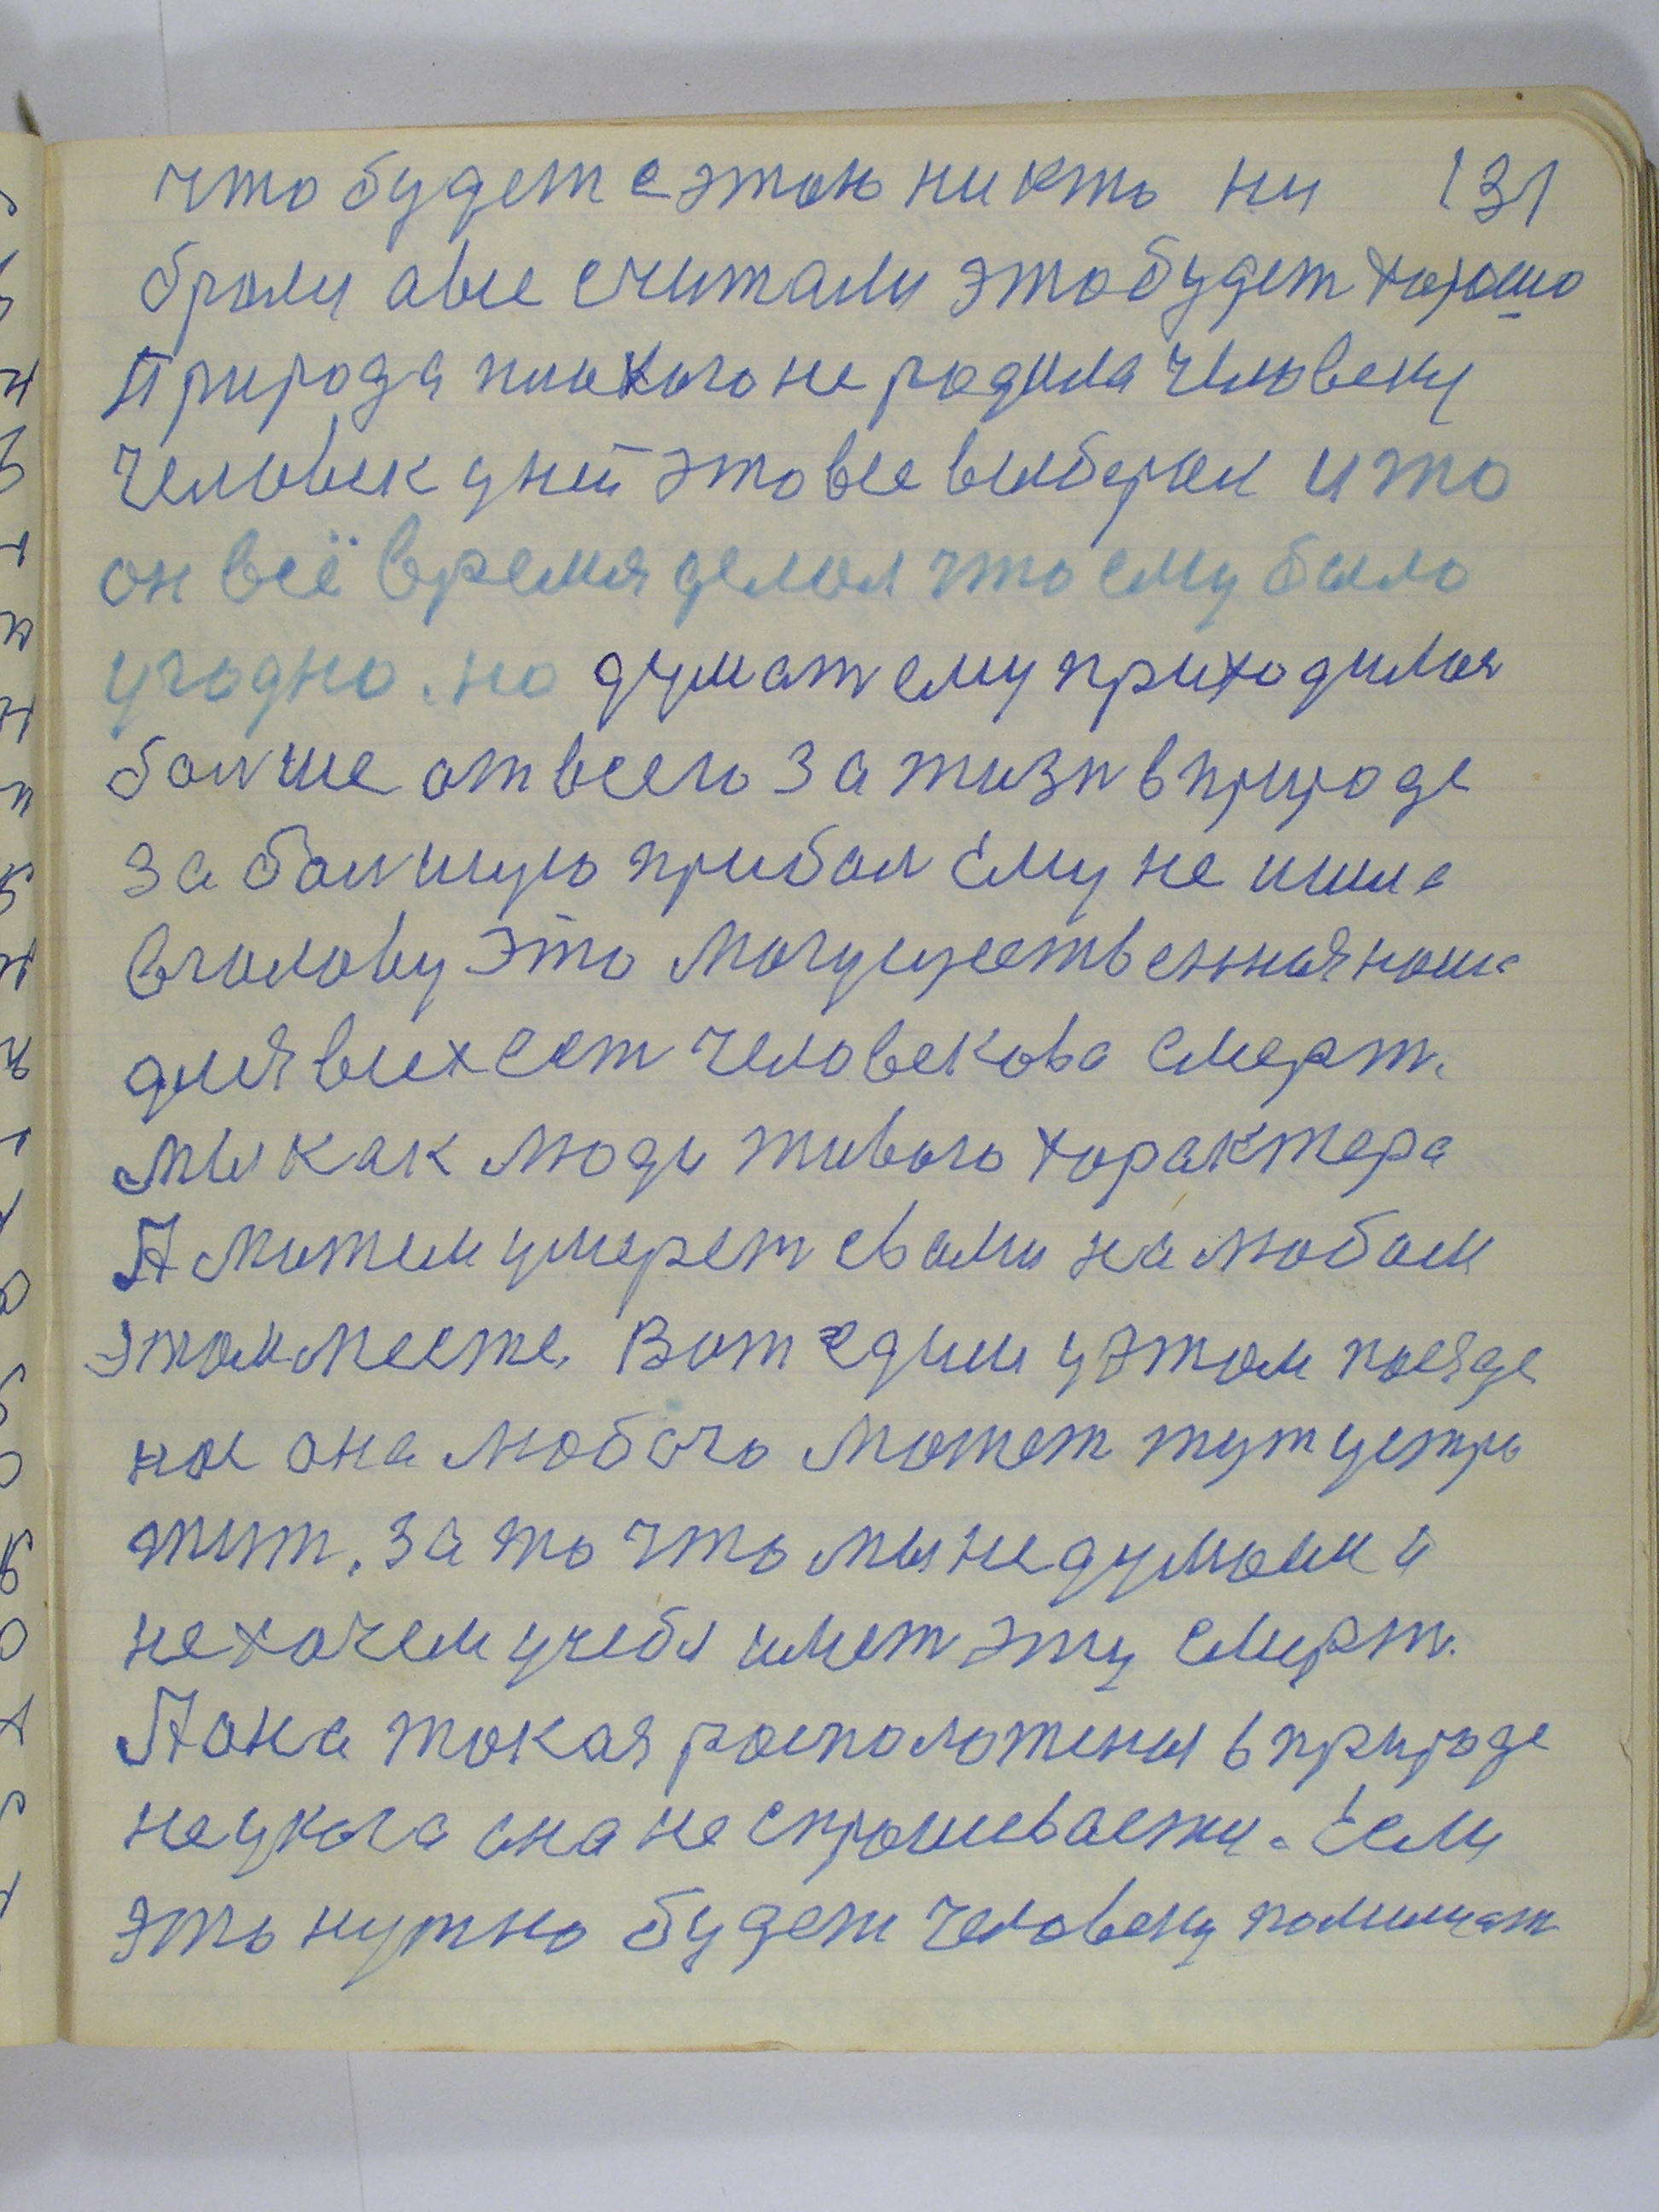 что будет с этою никто ни 131
брали а все считали это будет хорошо
Природа плохого не родила человеку
человек у ней это все выбрал и то
он всё время делал что ему было
угодно. но думат ему приходилося
болше от всего за жизн в природе
за болшую прибол ему не шила
в голову это могущественная наша
для всех ест человекова смерт.
мы как люди живого характера
А можем умерет с вами на любом
этом месте. Вот едим у этом поезде
нас она любого может тут устре
тит, за то что мы не думаем и
не хочем у себя имет эту смерт.
А она такая расположеная в природе
не у кого она не спрошевает. Если
это нужно будет человеку помишат